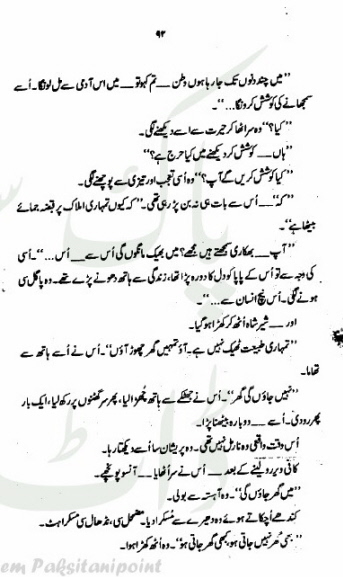 ۹۳
"میں چند دنوں تک جا رہا ہوں وطن ــــ تم کہو تو ــــ میں اس آدمی سے مل لوں گا۔ اُسے
سمجھانے کی کوشش کروں گا...."۔
"کیا؟" وہ سر اٹھا کر حیرت سے اسے دیکھنے لگی۔
"ہاں ــــ کوشش کر دیکھنے میں کیا حرج ہے؟"
"کیا کوشش کریں گے آپ؟" وہ اُسی تعجب اور تیزی سے پوچھنے لگی۔
"کہ" ــــ اُس سے بات ہی نہ بن پڑ رہی تھی۔ "کہ کیوں تمہاری املاک پر قبضہ جمائے
بیٹھا ہے"۔
"آپ ــــ بھکاری سمجھتے ہیں مجھے؟ میں بھیک مانگوں گی اُس سے ــــ اُس ...." اُسی
کی وجہ سے تو اُس کے پاپا کو دل کا دورہ پڑا تھا، زندگی سے ہاتھ دھونے پڑے تھے۔ وہ پاگل سی
ہونے لگی۔ اُس نیچ انسان سے ...."۔
اور ــــ شیر شاہ اُٹھ کر کھڑا ہو گیا۔
"تمہاری طبیعت ٹھیک نہیں ہے۔ آؤ تمہیں گھر چھوڑ آؤں"۔ اُس نے اُسے ہاتھ سے
تھاما۔
"نہیں جاؤں گی گھر"۔ اُس نے جھٹکے سے ہاتھ چھڑا لیا، پھر سر گھٹنوں پر رکھ لیا، ایک بار
پھر رو دی۔ اُسے ــــ دوبارہ بیٹھنا پڑا۔
اُس وقت واقعی وہ نارمل نہیں تھی۔ وہ پریشان سا اُسے دیکھتا رہا۔
کافی دیر رو لینے کے بعد ــــ اُس نے سر اُٹھایا ــــ آنسو پونچھے۔
"میں گھر جاؤں گی"۔ وہ آہستہ سے بولی۔
کندھے اُچکاتے ہوئے وہ دھیرے سے مُسکرا دیا۔ مضمحل سی، نڈھال سی مسکراہٹ۔
"کبھی گھر نہیں جاتی ہو، کبھی گھر جاتی ہو"۔ وہ اُٹھ کھڑا ہوا۔
em Paksitanipoint